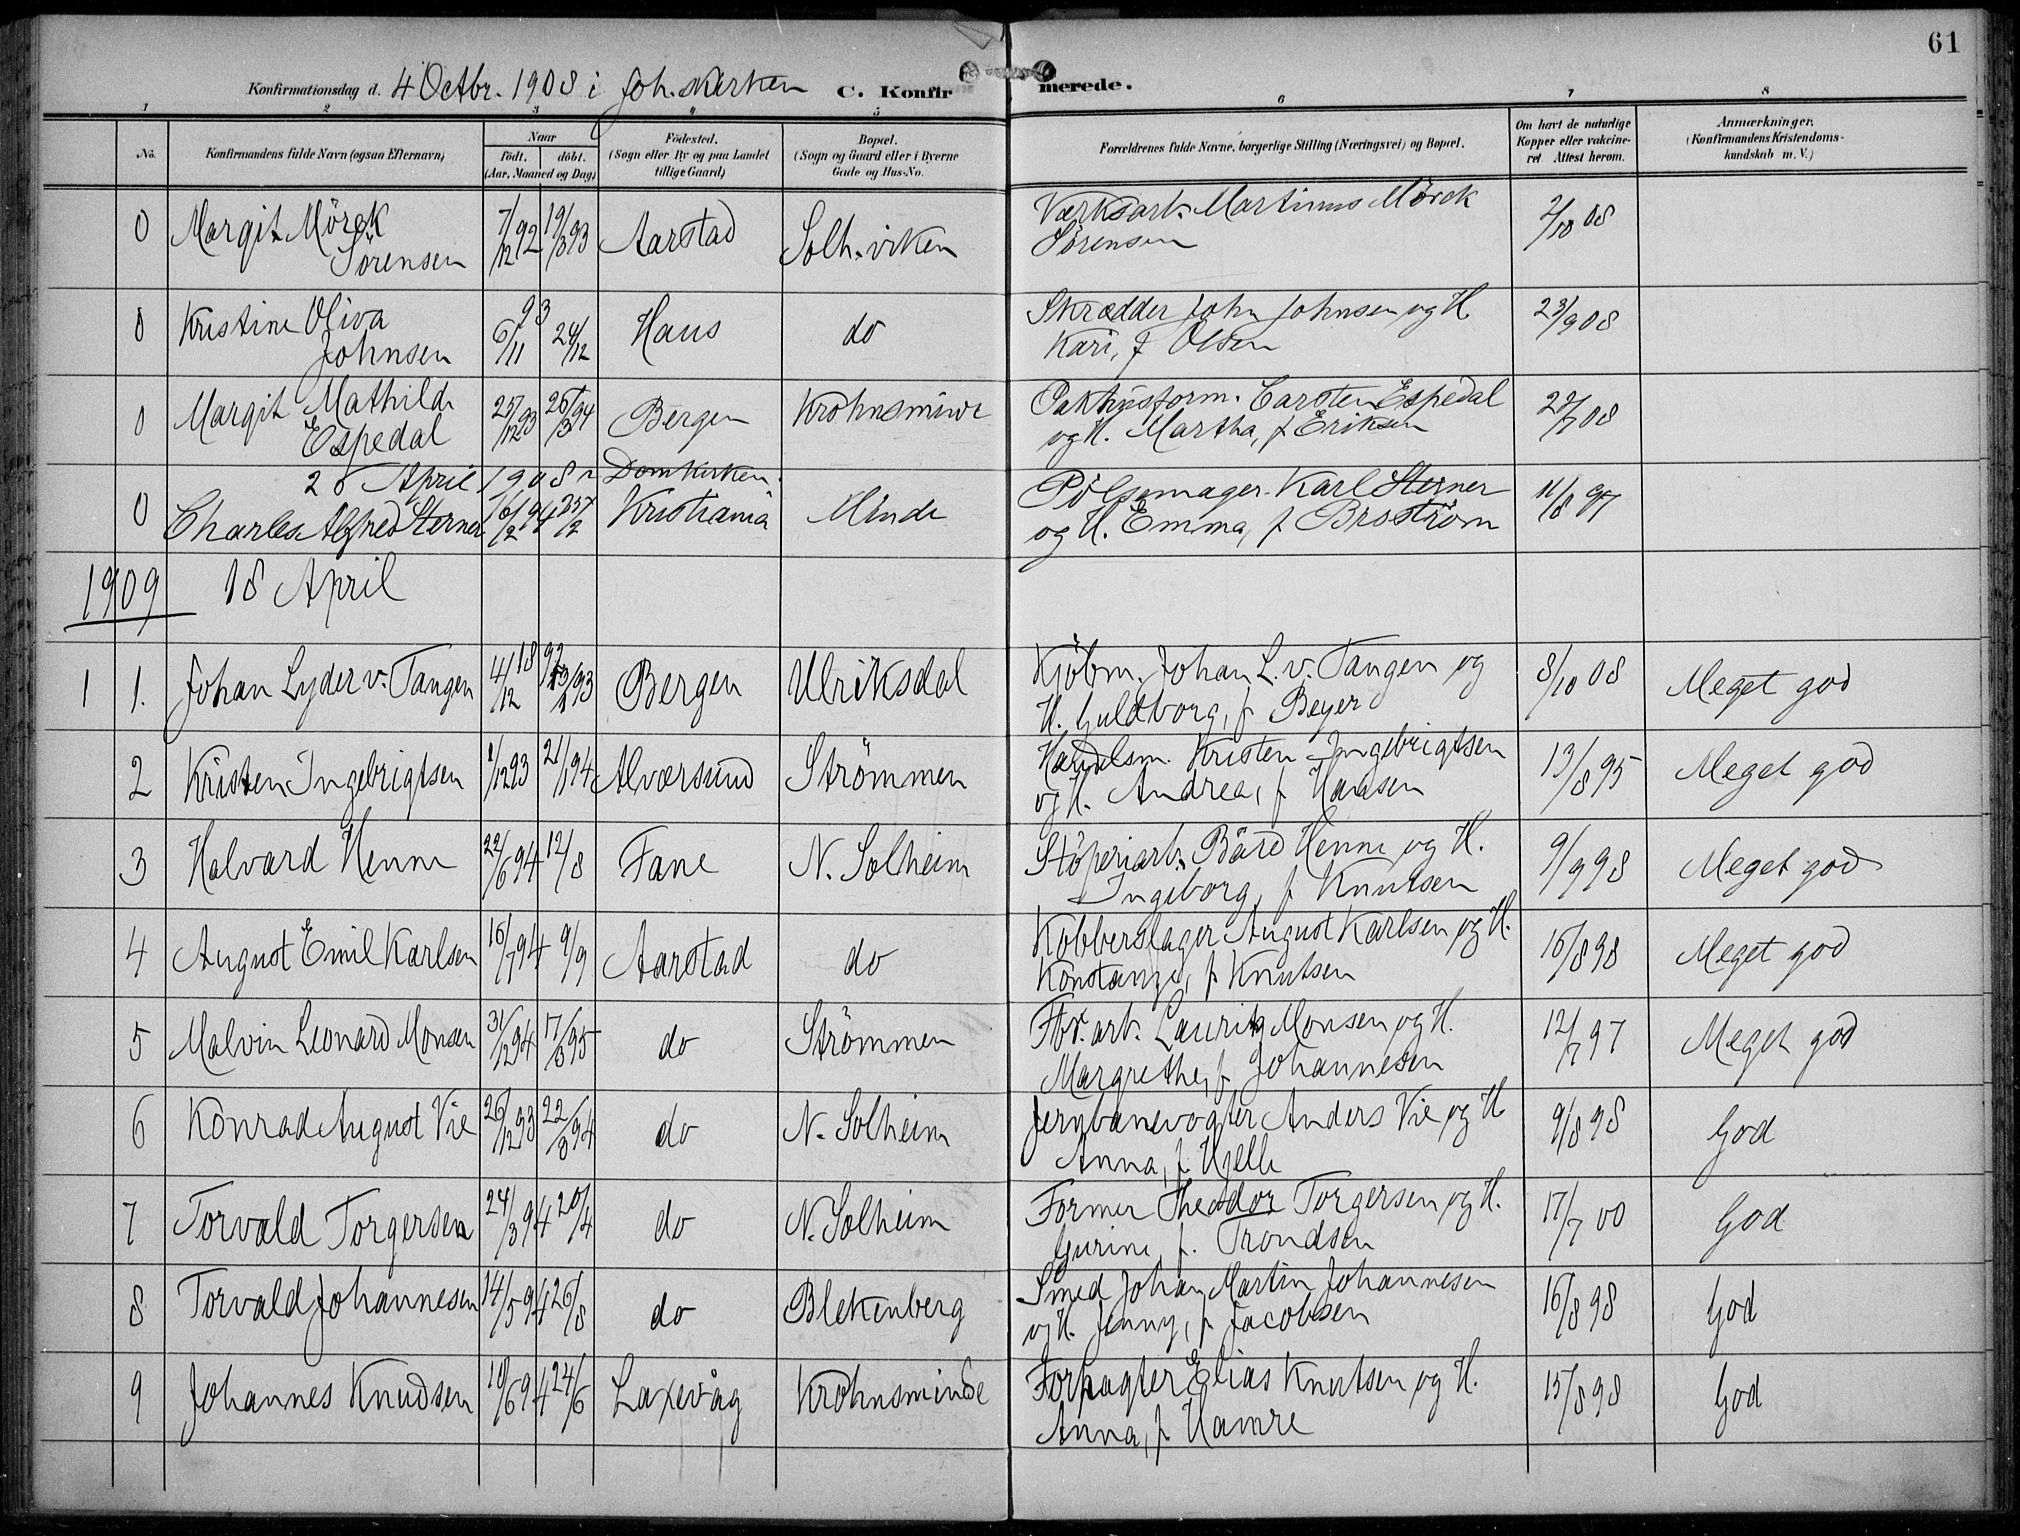 61
Konfirmationsdag d. 4 Octbr. 1908 i Joh. Kirken C. Konfirmerede.
1 2 3 4 5 6 7 8
No. Konfirmandens fulde Navn (ogsaa Efternavn) Naar født. døbt. (Aar, Maaned og Dag) Fødested. (Sogn eller By og paa Landet tillige Gaard) Bopæl. (Sogn og Gaard eller i Byerne Gade og Hus-No. Forældrenes fulde Navne, borgerlige Stilling (Næringsvei) og Bopæl. Om havt de naturlige Kopper eller vakcineret Attest herom. Anmærkninger. (Konfirmandens Kristendomskundskab m. V.)
0 Margit Mörck Sörensen 7/12 92 19/3 93 Aarstad Solh.viken Værksarb. Martinus Mörck Sörensen 2/10 08
0 Kristine Oliva Johnsen 6/11 93 24/12 Haus do Skrædder John Johnsen og H. Kari, f Olsen 23/9 08
0 Margit Mathilde Espedal 25/12 93 26/3 94 Bergen Krohnsminde Pakhusform. Carsten Espedal og H. Martha, f Eriksen 29/7 08
26 April 1908 i Domkirken.
0 Charles Alfred Sterner 16/2 94 25/2 Kristiania Minde Pölsemager Karl Sterner og H. Emma, f Broström 11/8 97
1909 18 April
1 1. Johan Lyder v. Tangen 4/12 1892 13/1 93 Bergen Ulriksdal Kjöbm. Johan L. v. Tangen og H. Guldborg, f Beyer 8/10 08 Meget god
2 Kristen Ingebrigtsen 1/12 93 21/1 94 Alværsund Strömmen Handelsm. Kristen Ingebrigtsen og H. Andrea, f Hansen 13/8 95 Meget god
3 Halvard Henne 22/6 94 12/8 Fane N. Solheim Stöperiarb. Bård Henne og H. Ingeborg, f Knutsen 9/9 98 Meget god
4 August Emil Karlsen 16/7 94 9/9 Aarstad do Kobberslager August Karlsen og H. Konstanze, f Knutsen 16/8 98 Meget god
5 Malvin Leonard Monsen 31/12 94 17/3 95 do Strömmen Fbr. arb. Lauritz Monsen og H. Margrethe, f Johannesen 12/7 97 Meget god
6 Konrad August Vie 26/12 93 22/3 94 do N. Solheim Jernbanevogter Anders Vie og H Anna, f. Hjelle 9/8 98 God
7 Torvald Torgersen 24/3 94 20/4 do N. Solheim Former Theodor Torgersen og H. Gurine, f. Trondsen 17/7 00 God
8 Torvald Johannesen 14/5 94 26/8 do Blekenberg Smed Johan Martin Johannesen og H. Jenny, f Jacobsen 16/8 98 God
9 Johannes Knudsen 10/6 94 24/6 Laxevåg Krohnsminde Forpagter Elias Knutsen og H. Anna, f Hamre 15/8 98 God